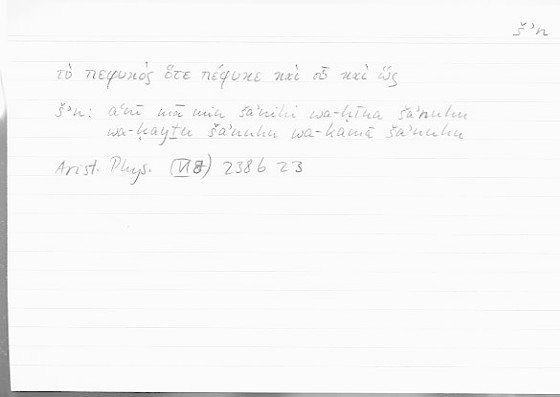 šʾn
τὸ πεφυκὸς ὅτε πέφυκε καὶ οὗ καὶ ὥς
šʾn: aʿnī mā min šaʾnihi wa-ḥīna šaʾnuhu
wa-ḥayṯu šaʾnuhu wa-kamā šaʾnuhu
Arist. Phys. (VI 8) 238 b 23